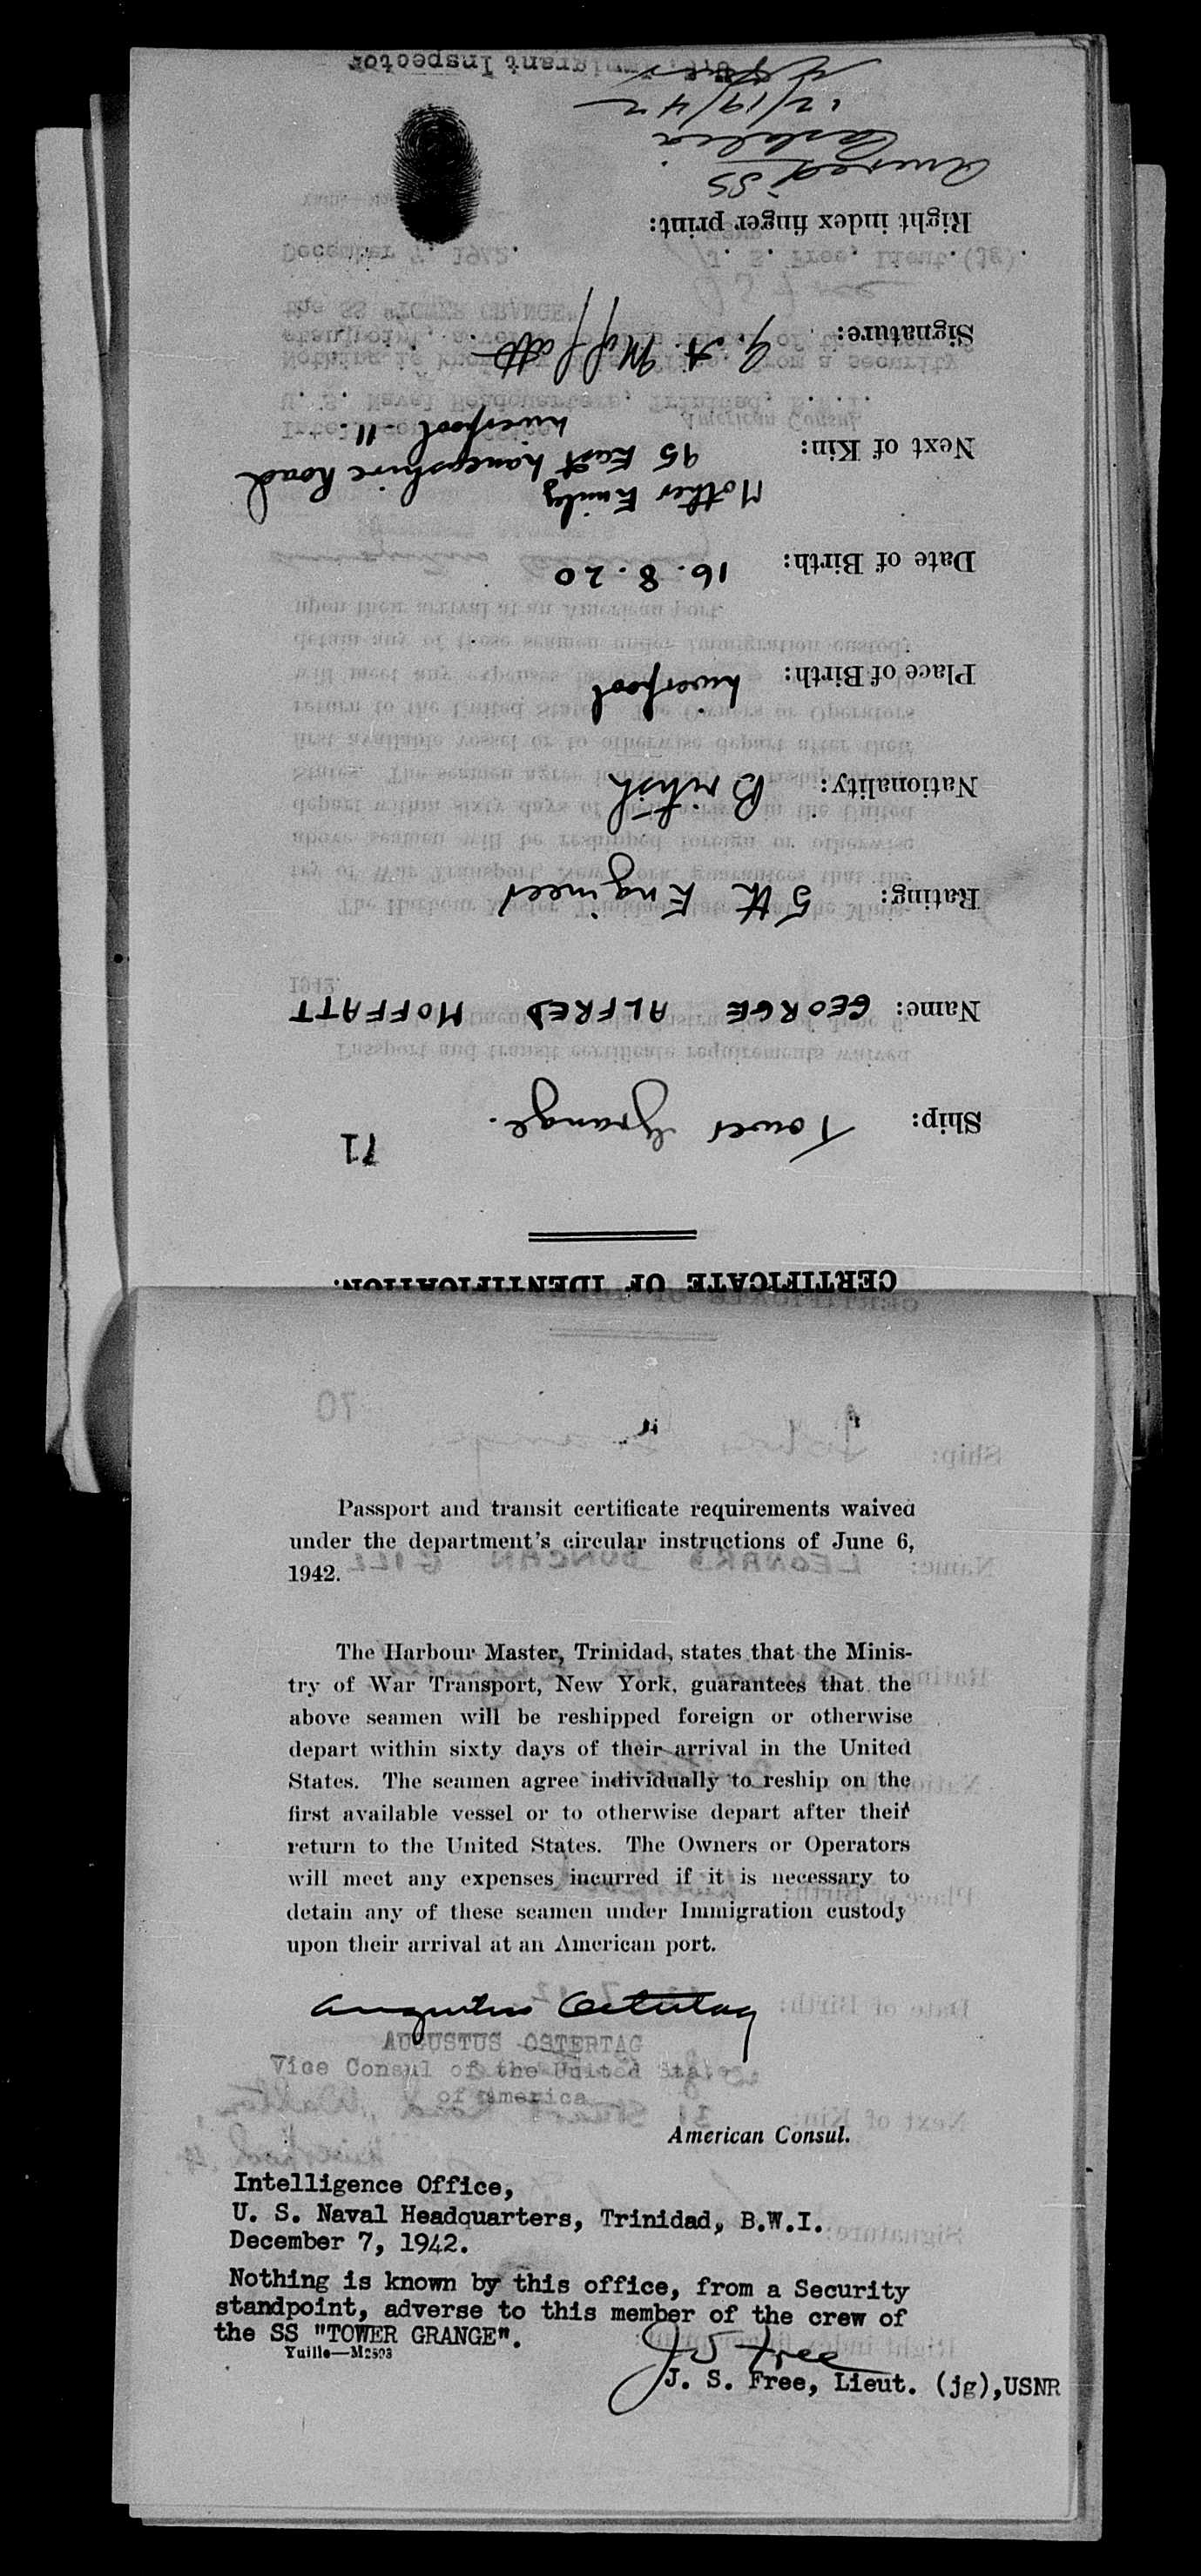 CERTIFICATE OF IDENTIFICATION.
71
Ship: Tower Grange.
Name: GEORGE ALFRED MOFFATT
Rating: 5th Engineer
Nationality: British
Place of Birth: Liverpool
Date of Birth: 16.8.20
Mother Emily
Next of Kin: 95 East Lancashire Road
Liverpool - 11.
Signature: G. A. Moffatt
Right index finger print:
SS
12/19/42
Immigrant Inspector
Passport and transit certificate requirements waived
under the department's circular instructions of June 6,
1942.
The Harbour Master, Trinidad, states that the Minis-
try of War Transport, New York, guarantees that the
above seamen will be reshipped foreign or otherwise
depart within sixty days of their arrival in the United
States. The seamen agree individually to reship on the
first available vessel or to otherwise depart after their
return to the United States. The Owners or Operators
will meet any expenses incurred if it is necessary to
detain any of these seamen under Immigration custody
upon their arrival at an American port.
Augustus Ostertag
AUGUSTUS OSTERTAG
Vice Consul of the United States
of America
American Consul.
Intelligence Office,
U. S. Naval Headquarters, Trinidad, B.W.I.
December 7, 1942.
Nothing is known by this office, from a Security
standpoint, adverse to this member of the crew of
the SS "TOWER GRANGE".
Yuille—M2593
J S Free
J. S. Free, Lieut. (jg),USNR